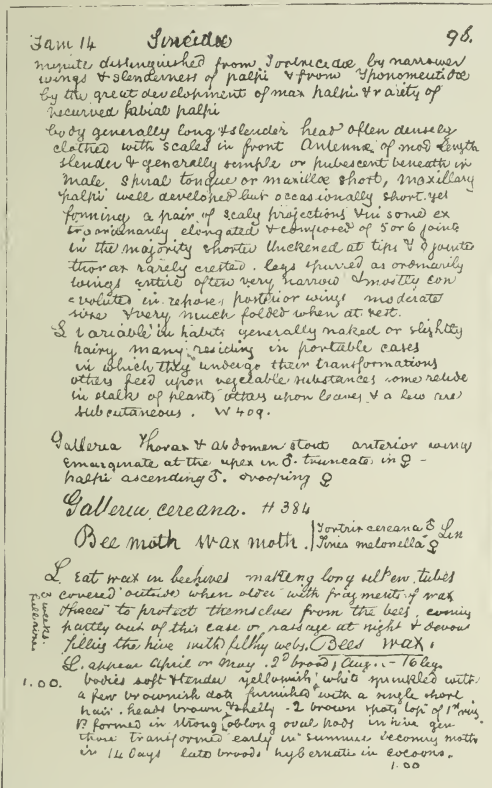 Fam 14 Tineidæ 96.
minute distinguished from Tortricidæ by narrower
wings & slenderness of palpi & from Yponomeutidæ
by the great development of max palpi & rarity of
recurved labial palpi
body generally long & slender head often densely
clothed with scales in front Antennæ of mod length
slender & generally simple or pubescent beneath in
male, spiral tongue or maxillæ short, maxillary
palpi well developed but occasionally short. yet
forming a pair of scaly projections & in some ex
traordinarily elongated & composed of 5 or 6 joints
in the majority shorter thickened at tips & jointed
thorax rarely crested. legs spurred as ordinarily
wings entire often very narrow & mostly con
voluted in repose, posterior wings moderate
size & very much folded when at rest.
L variable in habits generally naked or slightly
hairy many residing in portable cases
in which they undergo their transformations
others feed upon vegetable substances some reside
in stalk of plants others upon leaves & a few are
subcutaneous. W 409.
Galleria Thorax & abdomen stout anterior wings
emarginate at the apex in ♂. truncate in ♀ -
palpi ascending ♂. drooping ♀
Galleria cereana. # 384
Bee moth wax moth. Tortrix cereana ♂ Lin
Tinea melonella ♀
L. Eat wax in beehives making long silken tubes
covered outside when older with fragments of wax
& faeces to protect themselves from the bees, coming
partly out of this case or passage at night & devour
filling the hive with filthy webs. Bees wax.
3 weeks. full size
L. appear April or May. 2d brood, Aug. - 16 leg.
1.00. bodies soft & tender yellowish white sprinkled with
a few brownish dots furnished with a single short
hair. heads brown & shelly - 2 brown spots top of 1st ring
P formed in strong oblong oval pods in hive gen.
those transformed early in summer becoming moths
in 14 days late broods hybernate in cocoons.
1.00